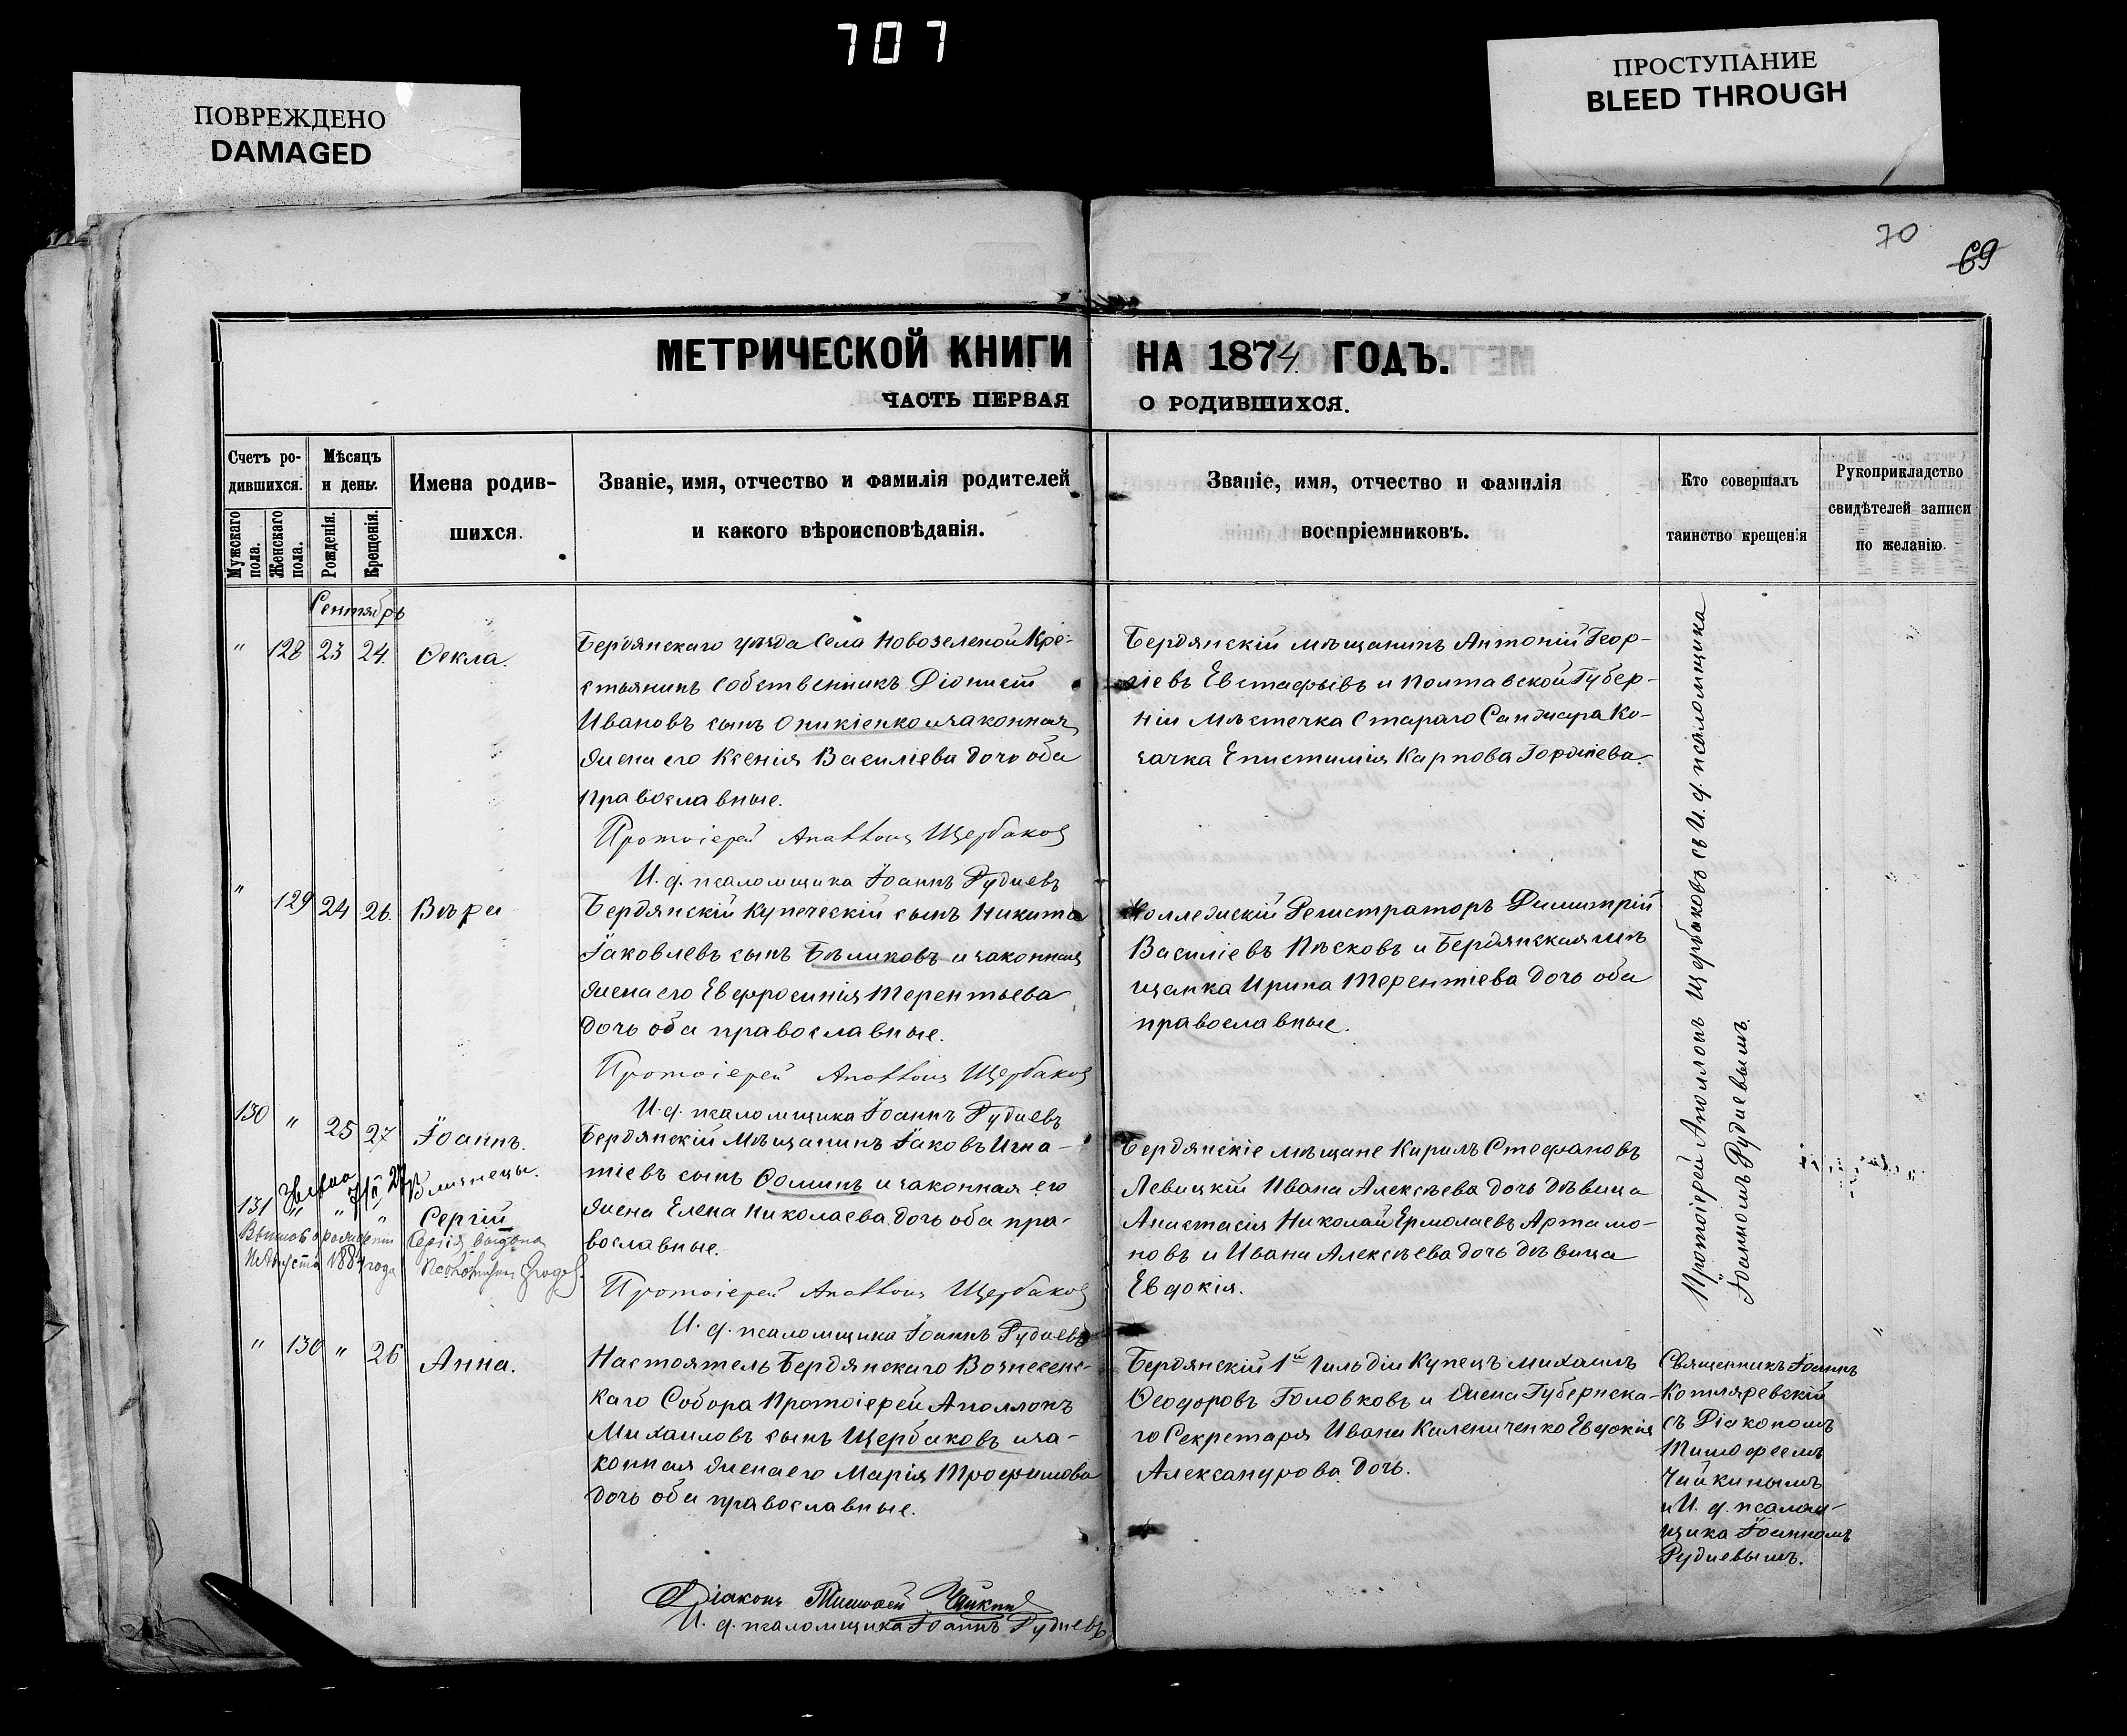 707
ПОВРЕЖДЕНО
DAMAGED
ПРОСТУПАНИЕ
BLEED THROUGH
70
69
МЕТРИЧЕСКОЙ КНИГИ НА 1874 ГОДЪ.
ЧАСТЬ ПЕРВАЯ О РОДИВШИХСЯ.
Счетъ ро-
дившихся.
Мѣсяцъ
и день.
Мужскаго пола.
Женскаго пола.
Рожденія.
Крещенія.
Имена родив-
шихся.
Званіе, имя, отчество и фамилія родителей
и какого вѣроисповѣданія.
Званіе, имя, отчество и фамилія
воспріемниковъ.
Кто совершалъ
таинство крещенія
Рукоприкладство
свидѣтелей записи
по желанію.
Сентябрь
" 128 23 24. Ѳекла.
Бердянскаго уѣзда села Новозеленой Кре-
стьянинъ собственникъ Діонисій
Ивановъ сынъ Оникіенко и законная
жена его Ксенія Василіева дочь оба
православные.
Протоіерей Аполлонъ Щербаковъ
И. д. псаломщика Іоаннъ Рудневъ
Бердянскій мѣщанинъ Антоній Геор-
гіевъ Евстафьевъ и Полтавской Губер-
ніи Мѣстечка Стараго Санжара Ко-
зачка Епистимія Карпова Гордіева.
" 129 24 26. Вѣра
Бердянскій Купеческій сынъ Никита
Іаковлевъ сынъ Бѣликовъ и законная
жена его Евфросинія Терентьева
дочь оба православные.
Протоіерей Аполлонъ Щербаковъ
И. д. псаломщика Іоаннъ Рудневъ
Коллежскій Регистраторъ Димитрій
Василіевъ Пѣсковъ и Бердянская мѣ
щанка Ирина Терентіева дочь оба
православные.
130 " 25 27 Іоаннъ.
близнецы.
131 " " " Сергій
Сергія выдана
1884 года
Бердянскій Мѣщанинъ Іаковъ Игна-
тіевъ сынъ Ѳоминъ и законная его
жена Елена Николаева дочь оба пра-
вославные.
Протоіерей Аполлонъ Щербаковъ
И. д. псаломщика Іоаннъ Рудневъ
Бердянскіе мѣщане Кирилъ Стефановъ
Левицкій Ивана Алексѣева дочь дѣвица
Анастасія Николай Ермолаевъ Артамо-
новъ и Ивана Алексѣева дочь дѣвица
Евдокія.
Протоіерей Аполлонъ Щербаковъ съ И. д. псаломщика
Іоанномъ Рудневымъ.
" 130 " 26 Анна.
Настоятель Бердянскаго Вознесенс-
каго Собора Протоіерей Аполлонъ
Михаиловъ сынъ Щербаковъ и за-
конная жена его Марія Трофимова
дочь оба православные.
Діаконъ Тимофей Чайкинъ
И. д. псаломщика Іоаннъ Рудневъ
Бердянскій 1й Гильдіи Купецъ Михаилъ
Ѳеодоровъ Головковъ и жена Губернска-
го Секретаря Ивана Калениченко Евдокія
Александрова дочь.
Священникъ Іоаннъ
Котляревскій
съ Діакономъ
Тимофеемъ
Чайкинымъ
и И. д. псалом-
щика Іоанномъ
Рудневымъ.